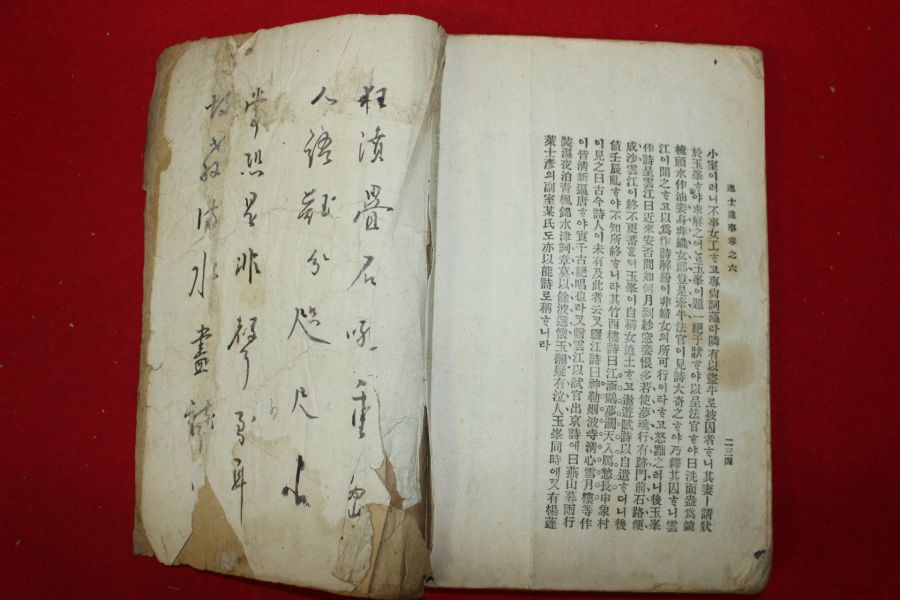 逸士遺事卷之六 二三四
小室이러니不事女工ᄒᆞ고專尙詞藻라隣有以盜牛로被囚者ᄒᆞ니其妻ㅣ請狀
於玉峯ᄒᆞ야求解之어ᄂᆞᆯ玉峯이題一絶于狀ᄒᆞ야以呈法官ᄒᆞ야曰洗面盆爲鏡
梳頭水作油妾身非織女郞豈是牽牛法官이見詩大奇之ᄒᆞ야乃釋其囚ᄒᆞ니雲
江이聞之ᄒᆞ고以爲作詩解紛이非婦女의所可行이라ᄒᆞ고怒黜之러니後玉峯
作詩呈雲江曰近來安否問如何月到紗窓妾恨多若使夢魂行有跡門前石路便
成沙雲江이終不更蓄ᄒᆞ니玉峯이自稱女道士ᄒᆞ고遨遊賦詩以自遣ᄒᆞ더니後
値壬辰亂ᄒᆞ야不知所終ᄒᆞ니라其竹西樓詩曰江涵鷗夢濶天入鴈愁長申象村
이見之曰古今詩人이未有及此者云又驪江詩曰神勒烟波寺淸心雪月樓等作
이皆淸新逼唐ᄒᆞ야實千古絶唱也라又贈雲江以試官出京詩에曰燕山暮雨行
裝濕夜泊靑楓鏡水津詞章莫以餘波選懷玉翻疑有泣人玉峯同時에又有楊蓬
萊士彦의副室某氏도亦以能詩로稱ᄒᆞ니라
狂濆疊石吼重巒
人語難分咫尺間
常恐是非聲到耳
故敎流水盡籠